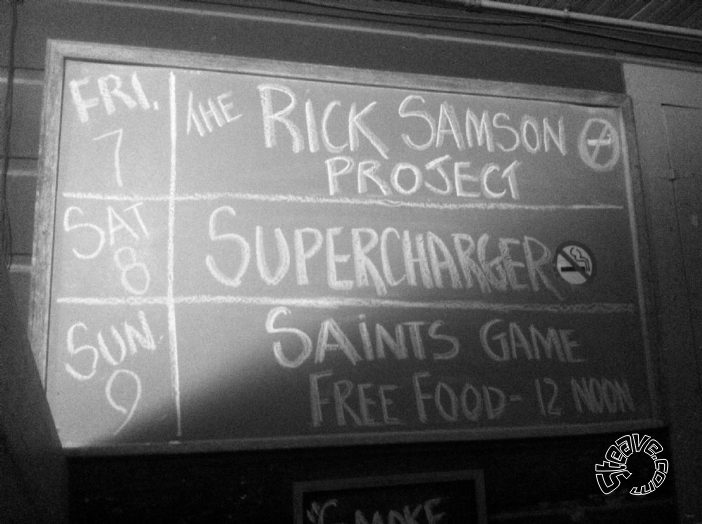 FRI. THE RICK SAMSON
7 PROJECT
SAT SUPERCHARGER
8
SUN. SAINTS GAME
9 FREE FOOD- 12 NOON
Steave.com